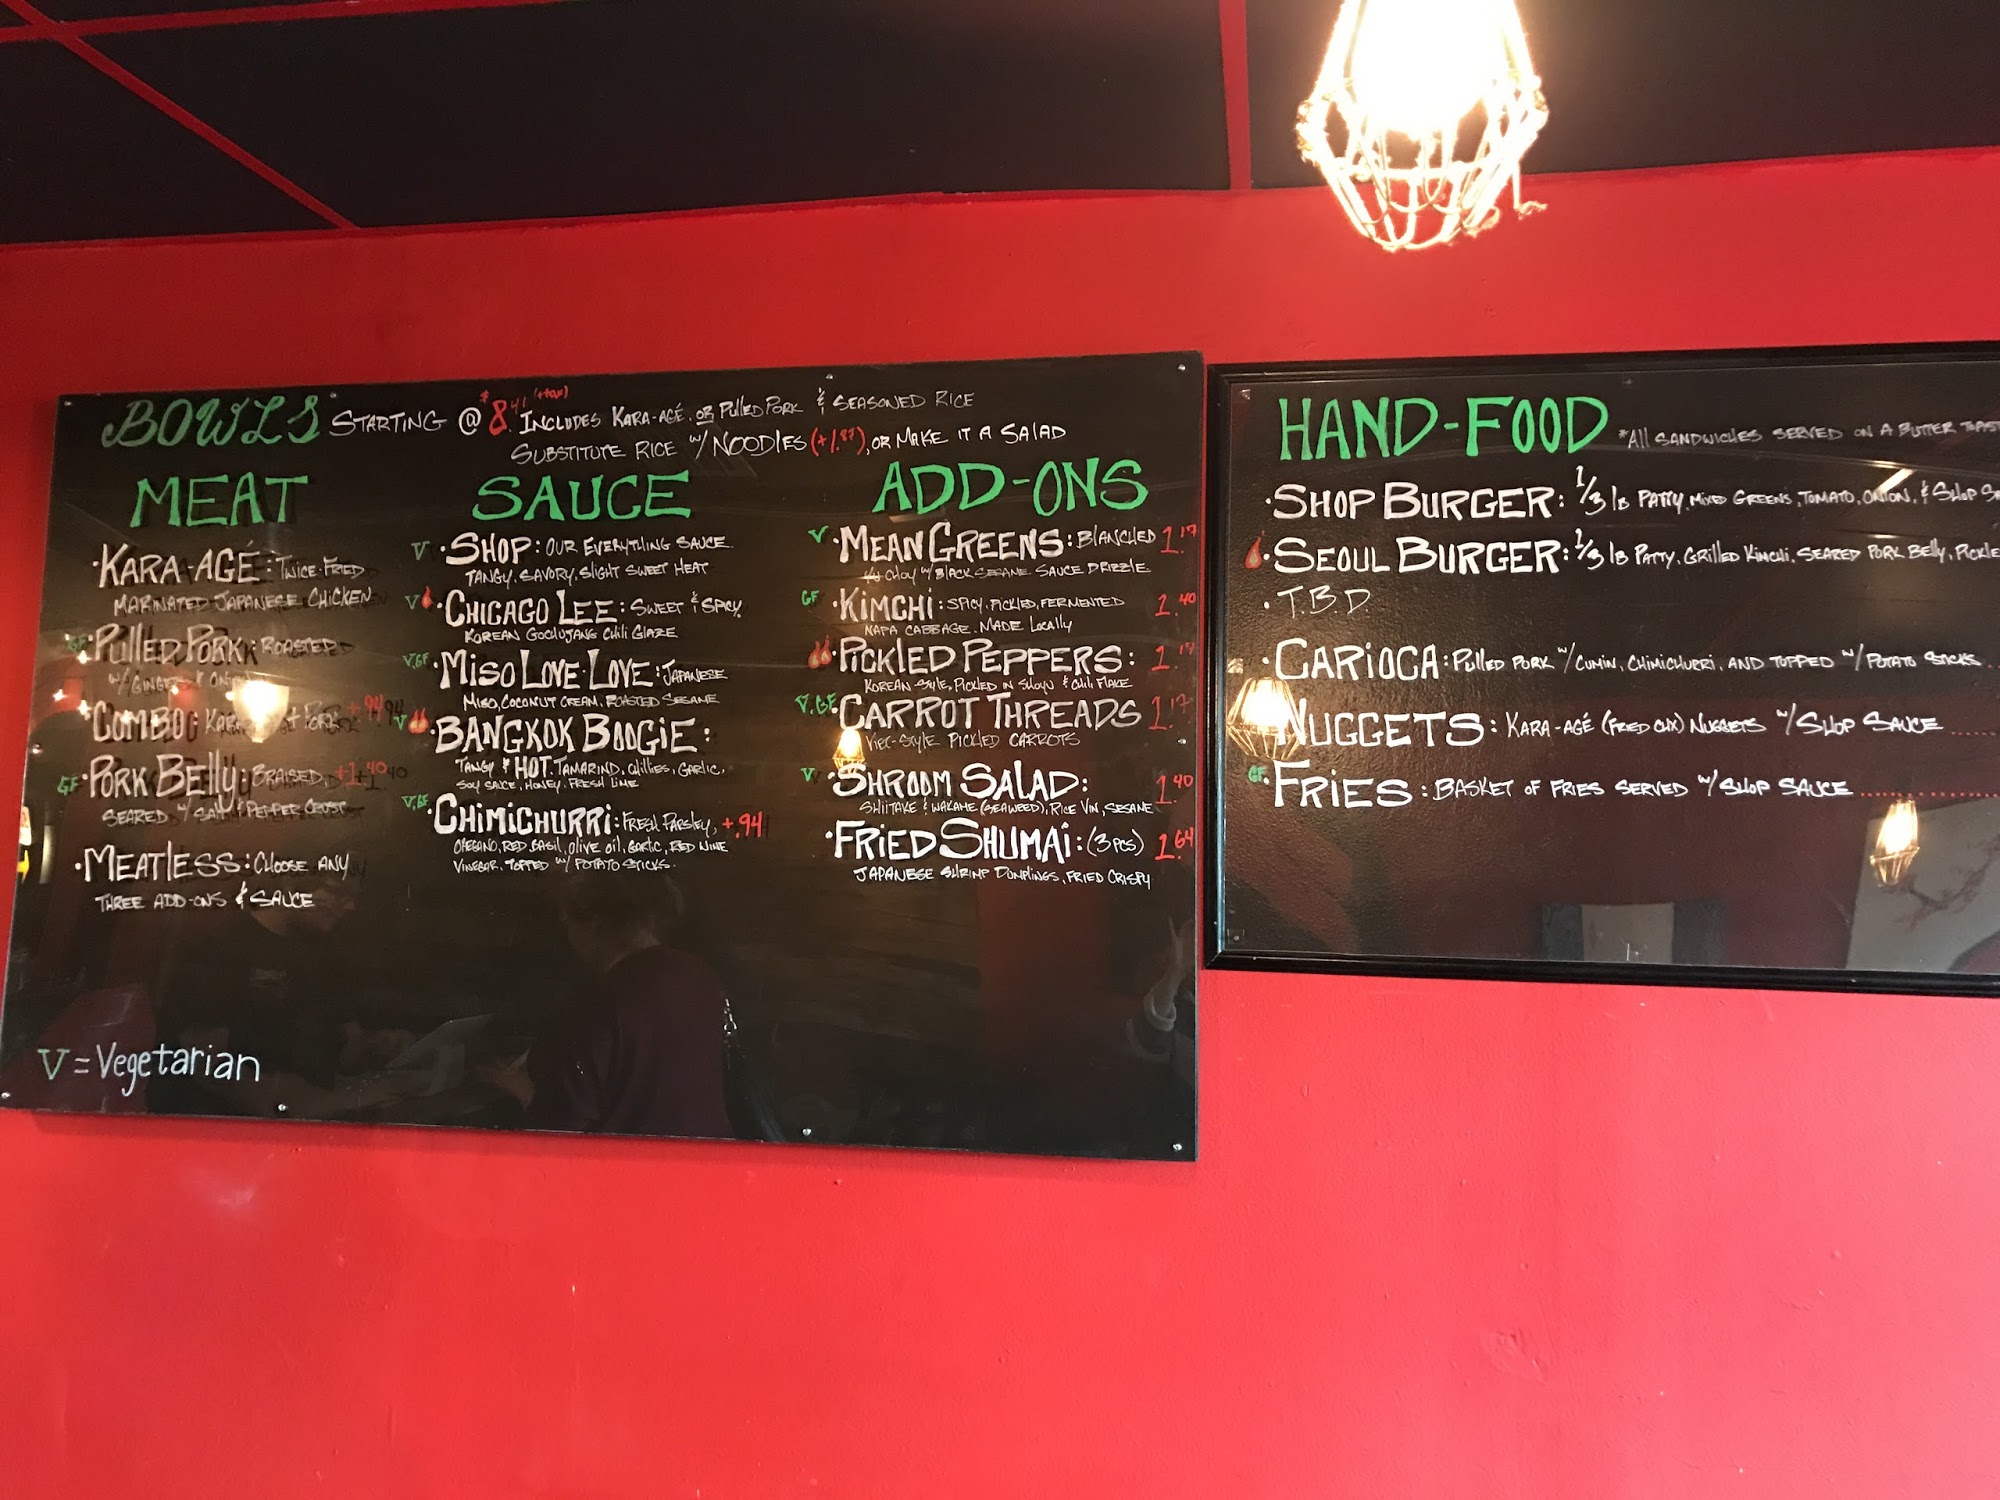 BOWLS STARTING @ $8.41 (+tax) INCLUDES KARA-AGÉ OR PULLED PORK & SEASONED RICE
SUBSTITUTE RICE W/ NOODLES (+1.87), OR MAKE IT A SALAD
MEAT
·KARA-AGÉ: TWICE-FRIED
MARINATED JAPANESE CHICKEN
GF ·PULLED PORK: ROASTED
W/ GINGER & ONION
·COMBO: KARA-AGÉ PORK +.94
GF ·PORK BELLY: BRAISED, +1.40
SEARED W/ SALT & PEPPER CRUST
·MEATLESS: CHOOSE ANY
THREE ADD-ONS & SAUCE
V = Vegetarian
SAUCE
V ·SHOP: OUR EVERYTHING SAUCE.
TANGY, SAVORY, SLIGHT SWEET HEAT
V ·CHICAGO LEE: SWEET & SPICY
KOREAN GOCHUJANG CHILI GLAZE
V.GF ·MISO LOVE-LOVE: JAPANESE
MISO, COCONUT CREAM, ROASTED SESAME
V ·BANGKOK BOOGIE:
TANGY & HOT. TAMARIND, CHILLIES, GARLIC,
SOY SAUCE, HONEY, FRESH LIME
V.GF ·CHIMICHURRI: FRESH PARSLEY, +.94
OREGANO, RED BASIL, OLIVE OIL, GARLIC, RED WINE
VINEGAR, TOPPED W/ POTATO STICKS.
ADD-ONS
V ·MEAN GREENS: BLANCHED 1.17
CHOY W/ BLACK SESAME SAUCE DRIZZLE
GF ·KIMCHI: SPICY, PICKLED, FERMENTED 1.40
NAPA CABBAGE. MADE LOCALLY
·PICKLED PEPPERS: 1.17
KOREAN STYLE, PICKLED IN SHOYU & CHILI FLAKE
V.GF ·CARROT THREADS 1.17
VIET-STYLE PICKLED CARROTS
V ·SHROOM SALAD: 1.40
SHIITAKE & WAKAME (SEAWEED), RICE VIN, SESAME
·FRIED SHUMAI: (3 PCS) 1.64
JAPANESE SHRIMP DUMPLINGS, FRIED CRISPY
HAND-FOOD *All SANDWICHES SERVED ON A BUTTER TOAST
·SHOP BURGER: 1/3 lb PATTY, MIXED GREENS, TOMATO, ONION, & SHOP
·SEOUL BURGER: 1/3 lb PATTY, GRILLED KIMCHI, SEARED PORK BELLY, PICKLE
·T.B.D.
·CARIOCA: PULLED PORK W/ CUMIN, CHIMICHURRI, AND TOPPED W/ POTATO STICKS
NUGGETS: KARA-AGÉ (FRIED CHX) NUGGETS W/ SHOP SAUCE
GF ·FRIES: BASKET OF FRIES SERVED W/ SHOP SAUCE